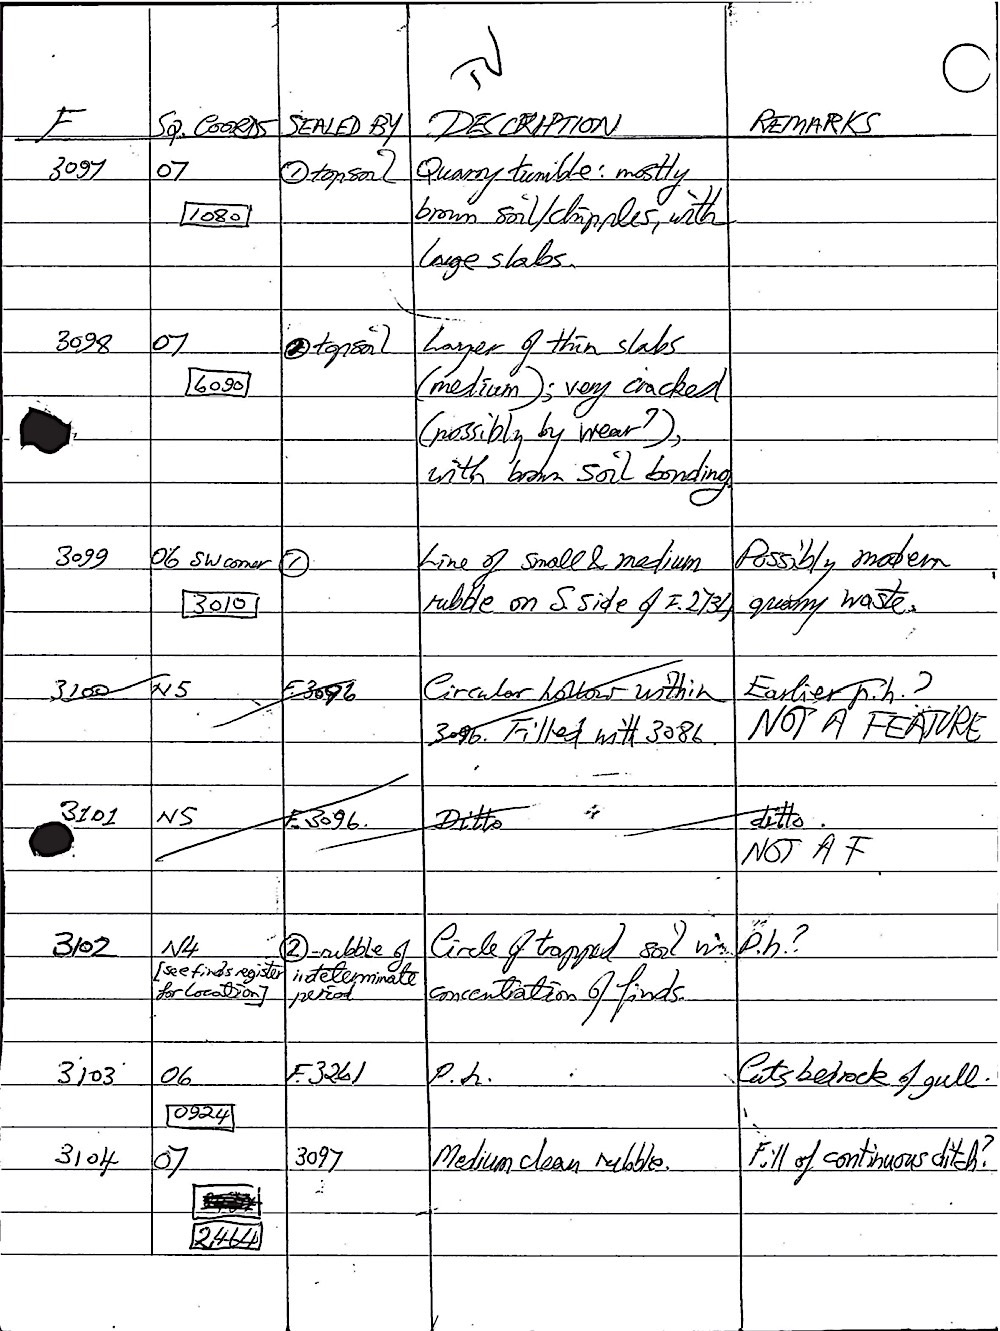 IV
F SQ. COORDS SEALED BY DESCRIPTION REMARKS
3097 07 ① topsoil Quarry tumble: mostly
1080 brown soil/chipples, with
large slabs.
3098 07 ② topsoil Layer of thin slabs
6090 (medium); very cracked
(possibly by wear?),
with brown soil bonding.
3099 06 SW corner ① Line of small & medium Possibly modern
3010 rubble on S. side of F.2734 quarry waste.
3100 N5 F.3096 Circular hollow within Earlier p.h.?
3096. Filled with 3086. NOT A FEATURE
3101 N5 F.3096. Ditto ditto.
NOT A F
3102 N4 ②-rubble of Circle of trapped soil in P.h.?
[see finds register indeterminate concentration of finds.
for location] period
3103 06 F.3261 P.h. Cuts bedrock of gull.
0924
3104 07 3097 Medium clean rubble. Fill of continuous ditch?
2464